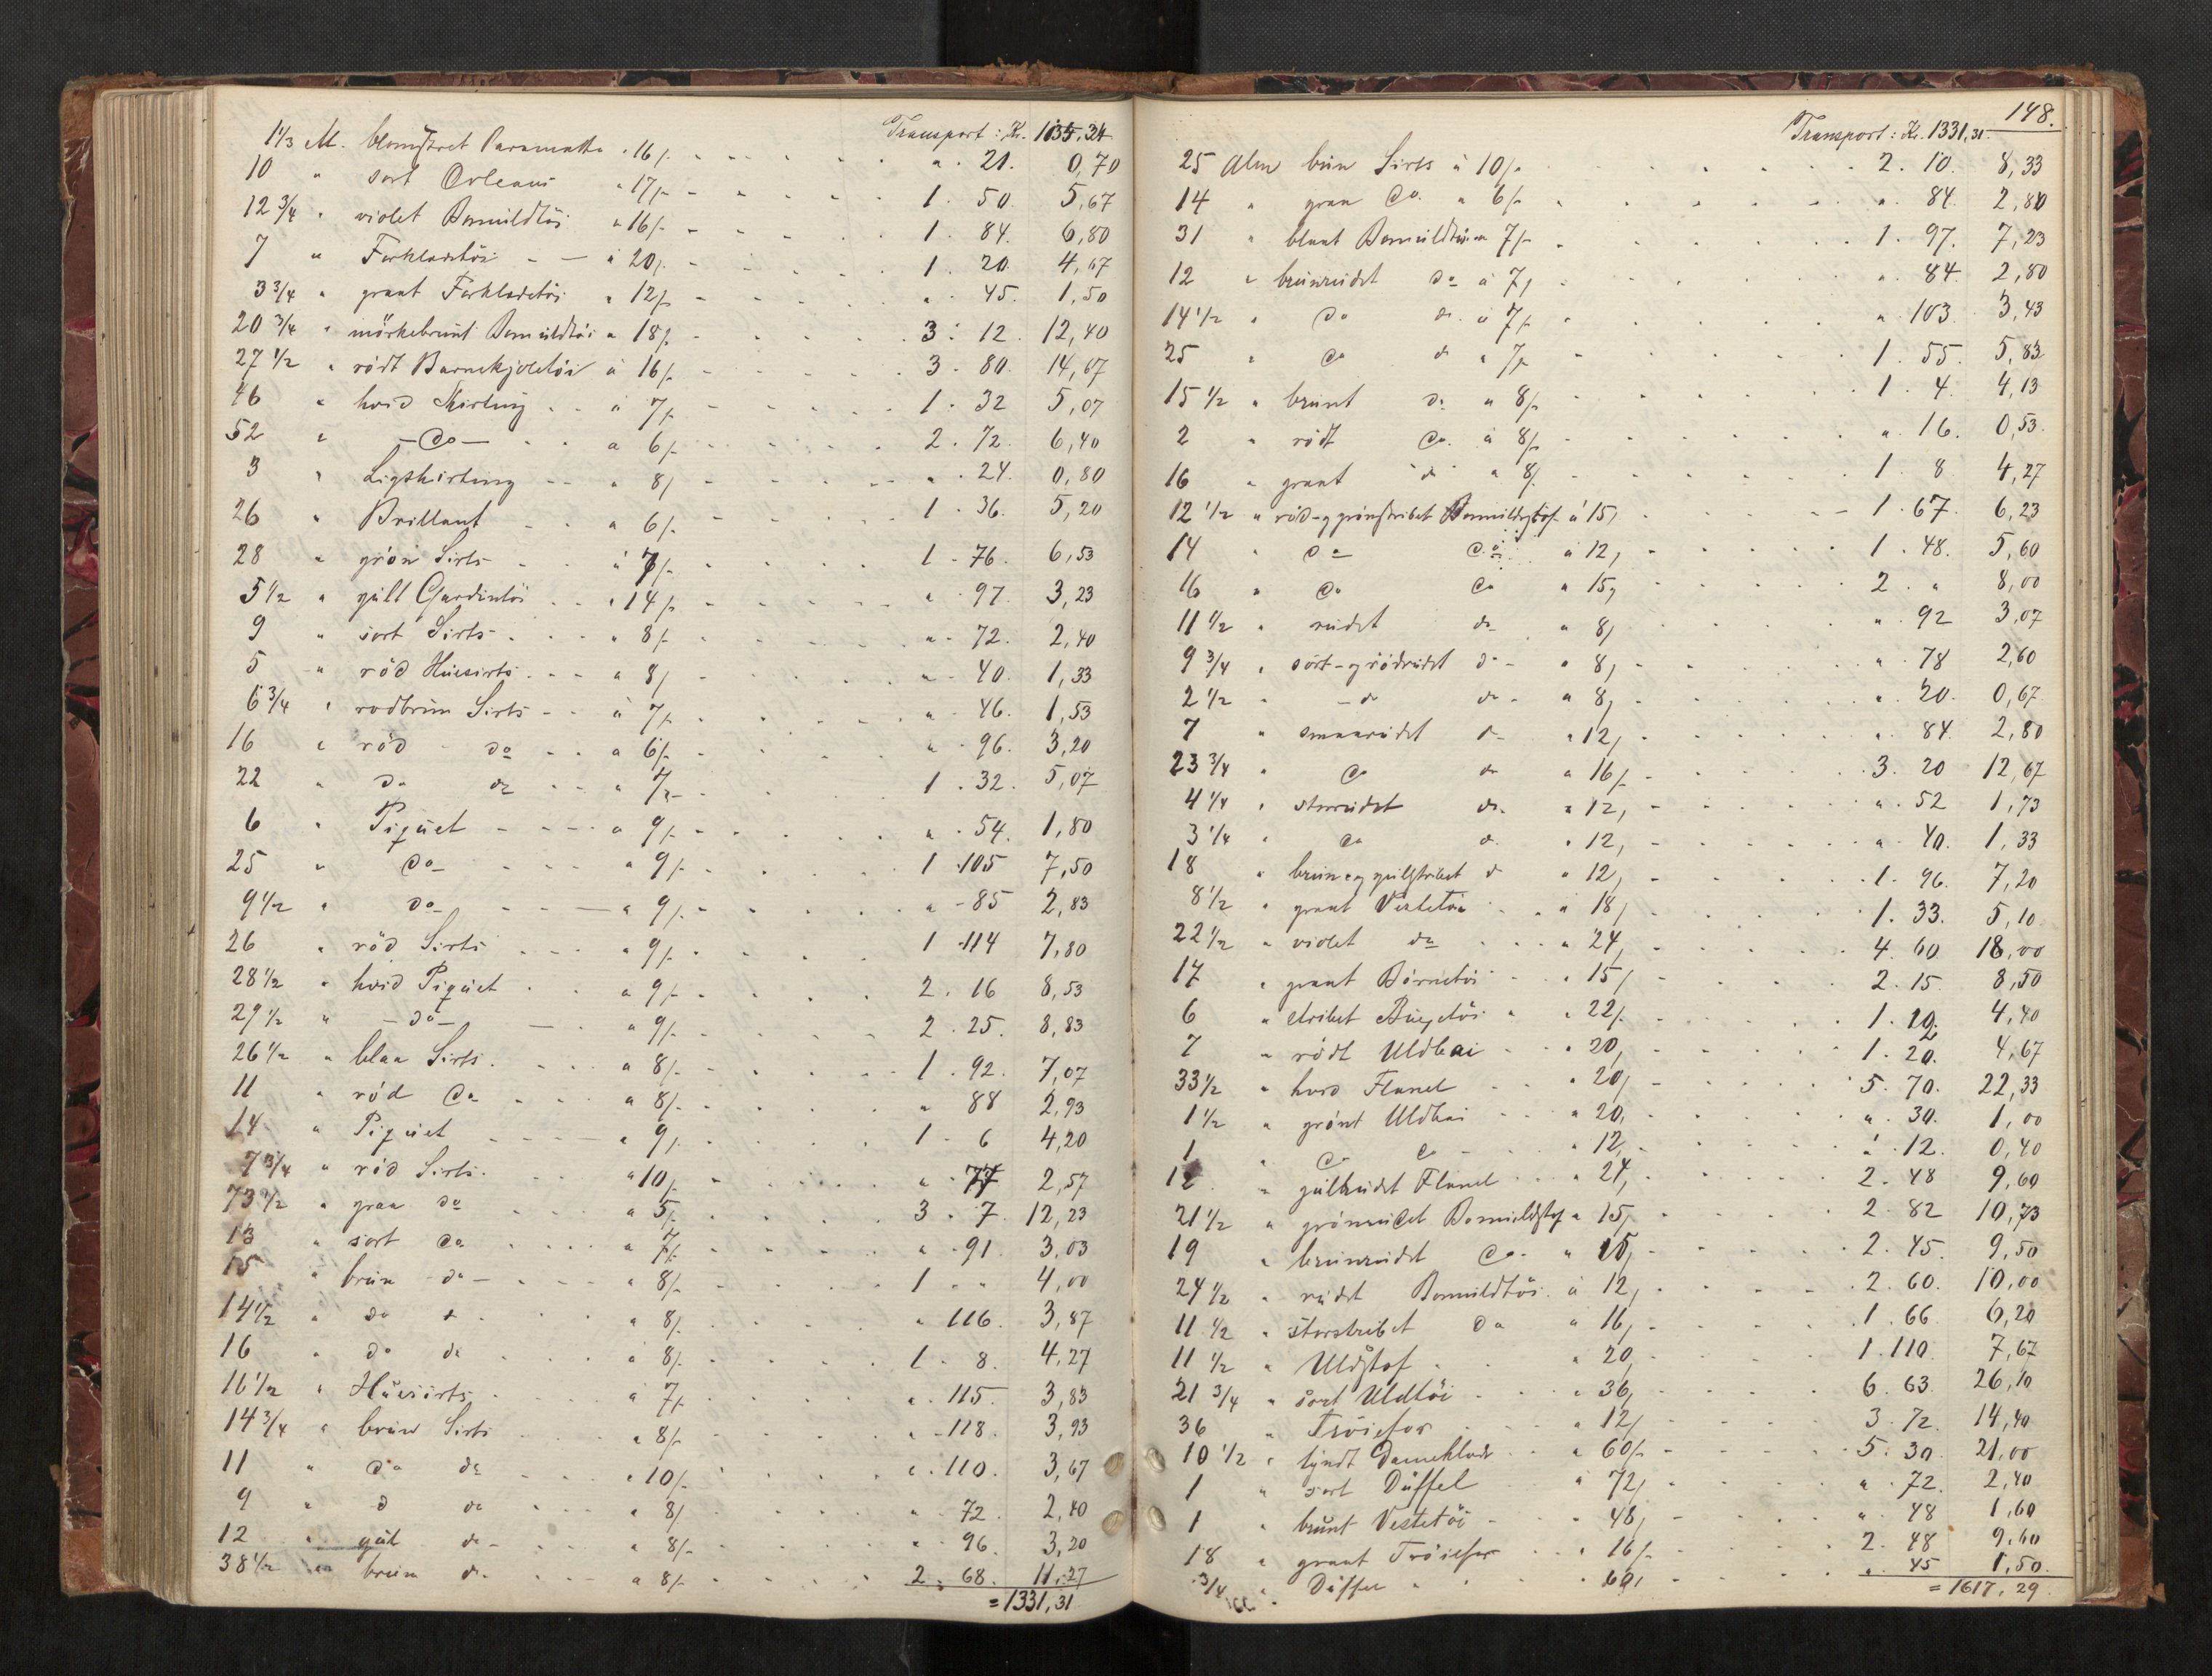 Transport: Kr. 1035,24
1 1/3 Al. blomstret Paramatta " 16/- " . 21. 0,70
10 " sort Orleans " 17/- 1. 50. 5,67
12 3/4 " violet Bomuldtöi " 16/- 1. 84. 6,80
7 " Forklædetöi - - à 20/- 1. 20. 4,67
3 3/4 " graat Forklædetöi " 12/- " 45. 1,50
20 3/4 " mörkebrunt Bomuldtöi a 18/- 3. 12. 12,40
27 1/2 " rödt Barnekjoletöi à 16/- 3. 80. 14,67
46 " hvid Skirting à 7/- 1. 32 5,07
52 " - Do - a 6/- 2. 72. 6,40
3 " Ligskirting " 8/ " 24. 0,80
26 " Brillant a 6/- 1. 36. 5,20
28 " grön Sirts à 7/- 1. 76. 6,53
5 1/2 " gult Gardintöi " 14/- " 97. 3,23
9 " sort Sirts " 8/- " 72. 2,40
5 " röd Huesirts a 8/ " 40. 1,33
6 3/4 " rödbrun Sirts à 7/- " 46. 1,53
16 " röd do a 6/- " 96. 3,20
22 " do do " 7/- 1. 32. 5,07
6 " Piquet a 9/- " 54. 1,80
25 " Do " 9/- 1 105 7,50
9 1/2 " Do " 9/- " 85 2,83
26 " röd Sirts " 9/- 1 114 7,80
28 1/2 " hvid Piquet a 9/- 2. 16 8,53
29 1/2 " - do - " 9/- 2. 25. 8,83
26 1/2 " blaa Sirts a 8/- 1. 92. 7,07
11 " röd Do a 8/- " 88 2,93
14 " Piquet " 9/- 1. 6 4,20
7 3/4 " röd Sirts. " 10/- " 77 2,57
73 1/2 " graa do a 5/- 3. 7. 12,23
13 " sort do " 7/- " 91. 3,03
15 " brun do - " 8/- 1. " 4,00
14 1/2 " do " " 8/- " 116. 3,87
16 " do do a 8/- 1. 8. 4,27
16 1/2 " Huesirts à 7/- " 115. 3,83
14 3/4 " brun Sirts " 8/- " 118. 3,93
11 " do do " 10/- " 110. 3,67
9 " d do " 8/ " 72. 2,40
12 " gul do - " 8/- " 96. 3,20
38 1/2 " brun do a 8/- 2. 68. 11,27
= 1331,31
148.
Transport: Kr. 1331,31
25 Alen brun Sirts à 10/- 2. 10. 8,33
14 " graa Do. " 6/- " 84. 2,80
31 " blaat Bomuldtöi a 7/- 1. 97. 7,23
12 " brunrudet do à 7/ " 84. 2,80
14 1/2 " Do do à 7/- " 103. 3,43
25 " Do do " 7/- 1. 55. 5,83
15 1/2 " brunt do " 8/- 1. 4. 4,13
2 " rödt Do. à 8/- " 16. 0,53
16 " graat do " 8/- 1. 8 4,27
12 1/2 " röd- og grönstribet Bomuldstof à 15/ 1. 67. 6,23
14 " do Do à 12, 1. 48. 5,60
16 " Do Do " 15, 2. " 8,00
11 1/2 " rudet do " 8/ " 92 3,07
9 3/4 " sort- og rödrudet do - " 8, " 78 2,60
2 1/2 " - do do " 8, " 20. 0,67
7 " smaarudet do " 12, " 84. 2,80
23 3/4 " Do do " 16/- 3. 20 12,67
4 1/4 " storrudet do " 12, " 52 1,73
3 1/4 " Do d. " 12, " 40. 1,33
18 " brun og gulstribet d " 12, 1. 96. 7,20
8 1/2 " graat Vestetöi " 18/ 1. 33. 5,10
22 1/2 " violet do " 24, 4. 60. 18,00
17 " graat Börnetöi " 15/ 2. 15. 8,50
6 " stribet Bugetöi " 22/- 1. 12. 4,40
7 " rödt Uldbai " 20, 1. 20. 4,67
33 1/2 " hvid Flanel " 20/ 5. 70. 22,33
1 1/2 " grönt Uldbai " 20, " 30. 1,00
1 " Do Do " 12, " 12. 0,40
12 " gulrudet Flanel " 24, 2. 48 9,60
21 1/2 " grönrudet Bomuldstof " 15, 2. 82 10,73
19 " brunrudet Do " 15, 2. 45. 9,50
24 1/2 " rudet Bomuldtöi à 12, 2. 60. 10,00
11 1/2 " storstribet Do " 16, 1. 66. 6,20
11 1/2 " Uldstof " 20, 1. 110. 7,67
21 3/4 " sort Uldtöi " 36, 6. 63. 26,10
36 " Tröiefor " 12/ 3. 72. 14,40
10 1/2 " tyndt Dameklæde " 60/- 5. 30. 21,00
1 " sort Düffel " 72/ " 72. 2,40
1 " brunt Vestetöi " 48, " 48 1,60
18 " graat Tröiefor " 16/- 2. 48 9,60
3/4 " Düffel " 60, " 45 1,50
= 1617,29